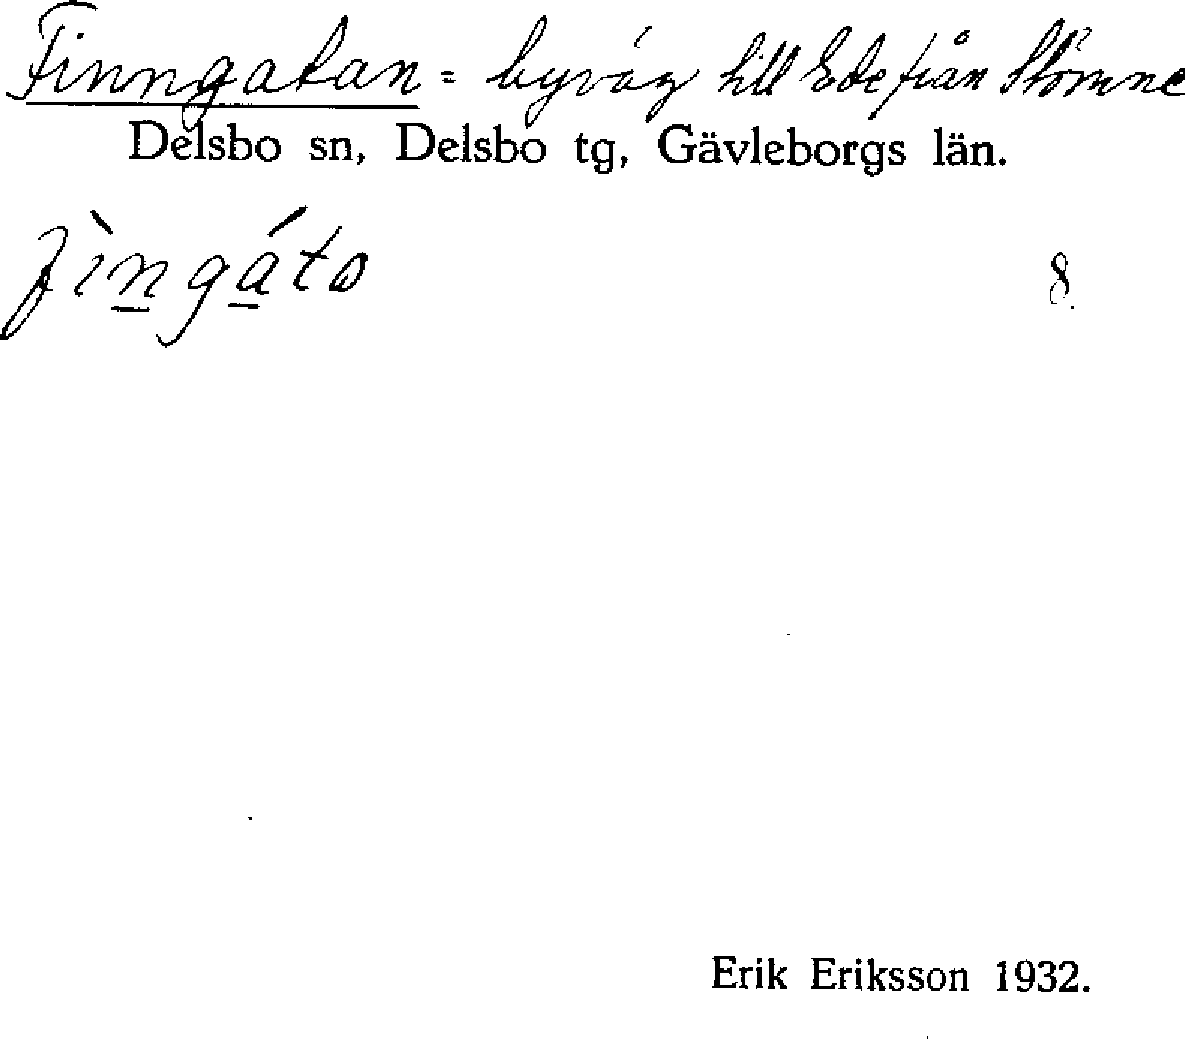 Finngatan = byväg till Ede från Stömne
Delsbo sn, Delsbo tg, Gävleborgs län.
fìngáto 8.
Erik Eriksson 1932.